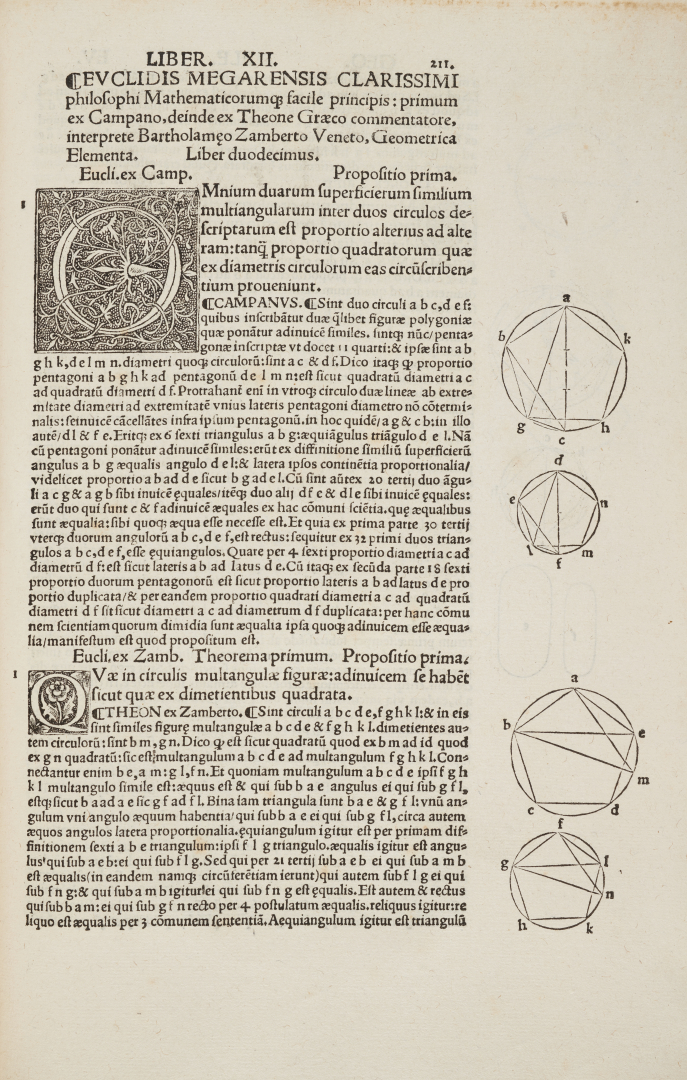 LIBER. XII. 211.
¶EVCLIDIS MEGARENSIS CLARISSIMI
philosophi Mathematicorumqꝫ facile principis: primum
ex Campano, deinde ex Theone Græco commentatore,
interprete Bartholamęo Zamberto Veneto, Geometrica
Elementa. Liber duodecimus.
Eucli. ex Camp. Propositio prima.
1
OMnium duarum superficierum similium
multiangularum inter duos circulos de-
scriptarum est proportio alterius ad alte
ram: tanq̃ proportio quadratorum quæ
ex diametris circulorum eas circũscriben-
tium proueniunt.
¶CAMPANVS. ¶Sint duo circuli a b c, d e f:
quibus inscribãtur duæ q̃libet figuræ polygoniæ
quæ ponãtur adinuicẽ similes. sintqꝫ nũc/penta-
gonæ inscriptæ vt docet 11 quarti: & ipsæ sint a b
g h k, d e l m n. diametri quoqꝫ circulorũ: sint a c & d f. Dico itaqꝫ ꝙ proportio
pentagoni a b g h k ad pentagonũ d e l m n: est sicut quadratũ diametri a c
ad quadratũ diametri d f. Protrahant̃ eni in vtroqꝫ circulo duæ lineæ ab extre-
mitate diametri ad extremitatẽ vnius lateris pentagoni diametro nõ cõtermi-
nalis: seinuicẽ cãcellãtes infra ipsum pentagonũ. in hoc quidẽ/a g & c b: in illo
autẽ/d l & f e. Eritqꝫ ex 6 sexti triangulus a b g: æquiãgulus triãgulo d e l. Nã
cũ pentagoni ponãtur adinuicẽ similes: erũt ex diffinitione similiũ superficierũ
angulus a b g æqualis angulo d e l: & latera ipsos continẽtia proportionalia/
videlicet proportio a b ad d e sicut b g ad e l. Cũ sint aũtex 20 tertij duo ãgu-
li a c g & a g b sibi inuicẽ ęquales/itẽqꝫ duo alij d f c & d l e sibi inuicẽ ęquales:
erũt duo qui sunt c & f adinuicẽ æquales ex hac cõmuni sciẽtia. quę æqualibus
sunt æqualia: sibi quoqꝫ æqua esse necesse est. Et quia ex prima parte 30 tertij
vterqꝫ duorum angulorũ a b c, d e f, est rectus: sequitur ex 32 primi duos trian-
gulos a b c, d e f, esse ęquiangulos. Quare per 4 sexti proportio diametri a c ad
diametrũ d f: est sicut lateris a b ad latus d e. Cũ itaqꝫ ex secũda parte 18 sexti
proportio duorum pentagonorũ est sicut proportio lateris a b ad latus d e pro
portio duplicata/& per eandem proportio quadrati diametri a c ad quadratũ
diametri d f sit sicut diametri a c ad diametrum d f duplicata: per hanc cõmu
nem scientiam quorum dimidia sunt æqualia ipsa quoqꝫ adinuicem esse æqua-
lia/manifestum est quod propositum est.
Eucli. ex Zamb. Theorema primum. Propositio prima.
1
QVæ in circulis multangulæ figuræ: adinuicem se habẽt
sicut quæ ex dimetientibus quadrata.
¶THEON ex Zamberto. ¶Sint circuli a b c d e, f g h k l: & in eis
sint similes figurę multangulæ a b c d e & f g h k l. dimetientes au-
tem circulorũ: sint b m, g n. Dico ꝙ est sicut quadratũ quod ex b m ad id quod
ex g n quadratũ: sic est multangulum a b c d e ad multangulum f g h k l. Con-
nectantur enim b e, a m: g l, f n. Et quoniam multangulum a b c d e ipsi f g h
k l multangulo simile est: æquus est & qui sub b a e angulus ei qui sub g f l,
estqꝫ sicut b a ad a e sic g f ad f l. Bina iam triangula sunt b a e & g f l: vnũ an-
gulum vni angulo æquum habentia/qui sub b a e ei qui sub g f l, circa autem
æquos angulos latera proportionalia. ęquiangulum igitur est per primam dif-
finitionem sexti a b e triangulum: ipsi f l g triangulo. æqualis igitur est angu-
lus qui sub a e b: ei qui sub f l g. Sed qui per 21 tertij sub a e b ei qui sub a m b
est æqualis (in eandem namqꝫ circũferẽtiam ierunt) qui autem sub f l g ei qui
sub f n g: & qui sub a m b igitur ei qui sub f n g est ęqualis. Est autem & rectus
qui sub b a m: ei qui sub g f n recto per 4 postulatum æqualis. reliquus igitur: re
liquo est æqualis per 3 cõmunem sententiã. Aequiangulum igitur est triangulũ
a
b k
g h
c
d
e n
l m
f
a
b e
m
c d
f
g l
n
h k